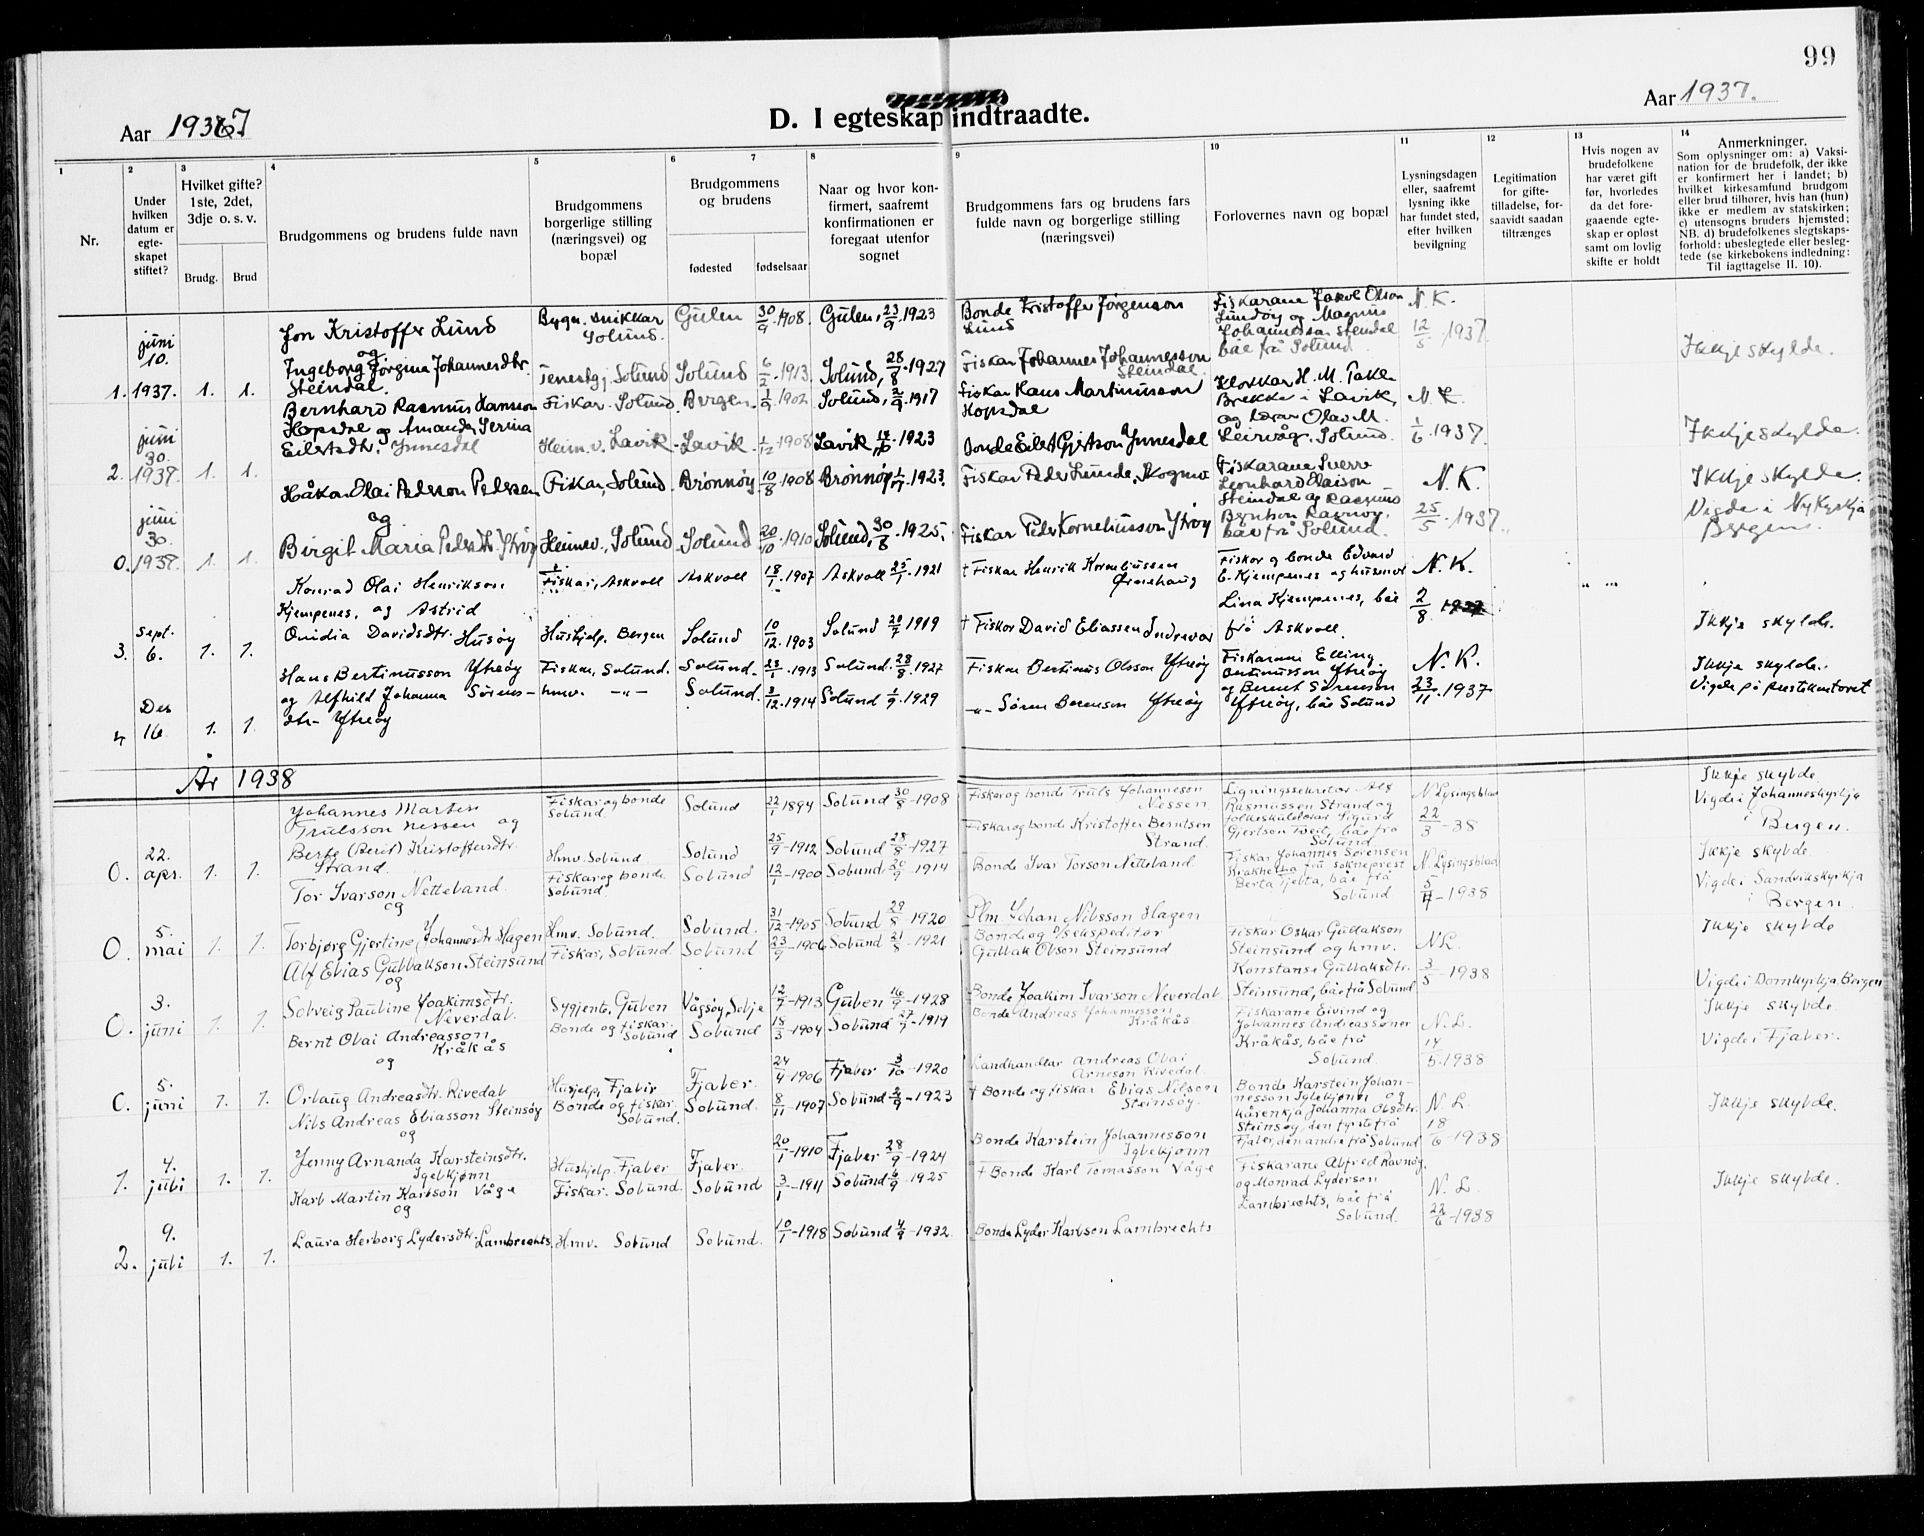 99
Aar 1937
D. I egteskap indtraadte.
Aar 1937.
1
2
3
4
5
6
7
8
9
10
11
12
13
14
Nr.
Under hvilken datum er egte-skapet stiftet?
Hvilket gifte? 1ste, 2det, 3dje o. s. v.
Brudg.
Brud
Brudgommens og brudens fulde navn
Brudgommens borgerlige stilling (næringsvei) og bopæl
Brudgommens og brudens
fødested
fødselsaar
Naar og hvor kon-firmert, saafremt konfirmationen er foregaat utenfor sognet
Brudgommens fars og brudens fars fulde navn og borgerlige stilling (næringsvei)
Forlovernes navn og bopæl
Lysningsdagen eller, saafremt lysning ikke har fundet sted, efter hvilken bevilgning
Legitimation for gifte-tilladelse, for-saavidt saadan tiltrænges
Hvis nogen av brudefolkene har været gift før, hvorledes da det fore-gaaende egte-skap er opløst samt om lovlig skifte er holdt
Anmerkninger.
Som oplysninger om: a) Vaksi-nation for de brudefolk, der ikke er konfirmert her i landet; b) hvilket kirkesamfund brudgom eller brud tilhører, hvis han (hun) ikke er medlem av statskirken; c) utensogns bruders hjemsted; NB. d) brudefolkenes slegtskaps-forhold: ubeslegtede eller besleg-tede (se kirkebokens indledning: Til iagttagelse II. 10).
1. juni 10. 1937. 1. 1.
Jon Kristoffer Lund
og
Ingeborg Jørgina Johannesdtr. Steindal.
Bygn. snikkar Solund.
Gulen 30/9 1908. Gulen, 23/9 1923
Tenestgj. Solund Solund 6/2 1913. Solund, 28/8 1927
Bonde Kristoffer Jørgenson Lund
Fiskar Johannes Johannesson Steindal.
Fiskarane Jakob Olson Lundøy og Magnus Johannesson Steindal båe frå Solund.
N. K. 12/5 1937.
Ikkje skylde.
2. juni 30. 1937. 1. 1.
Bernhard Rasmus Hansson Hopsdal og Amanda Serina Eilertsdtr. Ynnesdal
Fiskar. Solund. Bergen. 1/9 1902 Solund, 2/9 1917
Heimv. Lavik. Lavik. 1/12 1908 Lavik 1923
Fiskar Hans Martinusson Hopsdal
Bonde Eilert Gjertson Ynnesdal
Klokkar H. M. Takle Brekke i Lavik, og lærar Olav M. Leirvåg. Solund.
N. K. 1/6 1937.
Ikkje skylde.
0. juni 30. 1937. 1. 1.
Håkon Olai Pedersen
og
Birgit Maria Pedersdtr. Ytrøy
Fiskar, Solund. Brønnøy 10/8 1908 Brønnøy 1923.
Heimev. Solund Solund 20/10 1910 Solund, 30/8 1925.
Fiskar Peder Lunde, Skogmo
Fiskar Peder Korneliusson Ytrøy
Fiskarane Sverre Leonhard Steindal og Rasmus Berntson Ravnøy. båe frå Solund.
N. K. 25/5 1937.
Ikkje skylde.
Vigde i Nykyrkja Bergen.
3. Sept. 6. 1. 1.
Konrad Olai Henrikson Kjempenes, og Astrid Ovidia Davidsdtr. Husøy
Fiskar, Askvoll Askvoll 18/1 1907 Askvoll 25/1 1921
Hushjelp. Bergen Solund 10/12 1903 Solund 1919
† Fiskar Henrik Korneliussen Ørnehaug
† Fiskar David Eliassen Indrevær
Fiskar og bonde Edvard E. Kjempenes og husmor Lina Kjempenes, båe frå Askvoll.
N. K. 2/8 1937
Ikkje skylde.
4 Des 16. 1. 1.
Hans Bertinusson Ytreøy og Alfhild Johanna Sørens-dtr- Ytreøy
Fiskar, Solund. Solund. 23/1 1913 Solund. 28/8 1927
hmv. -"- Solund. 3/12 1914 Solund 1/9 1929
Fiskar Bertinus Olsson Ytreøy
-"- Søren Berenson Ytreøy
Fiskarane Elling Bertinusson Ytreøy og Bernt Sørenson Ytreøy, båe Solund
N. K. 23/11 1937
Ikkje skylde.
Vigde på prestekontoret
År 1938
0. 22. apr. 1. 1.
Johannes Martin Trulsson Nessen og Berte (Berit) Kristoffersdtr. Strand.
Fiskar og bonde Solund Solund 22/1 1894 Solund 30/8 -1908
Hmv. Solund. Solund 25/9 -1912 Solund 28/8 -1927
Fiskar og bonde Truls Johanneson Nessen
Fiskar og bonde Kristoffer Berntsen Strand.
Ligningssekretær Alf Rasmussen Strand og folkeskulelærar Sigurd Gjertson Tveit, båe frå Solund
N. Lysingsblad 22/3 -38
Ikkje skylde.
Vigde i Johanneskyrkja i Bergen.
0. 5. mai 1. 1.
Tor Ivarson Netteland.
og
Torbjørg Gjertine Johannesdtr. Hagen
Fiskar og bonde Solund. Solund 12/1 -1900 Solund 20/9 -1914
Hmv. Solund. Solund. 31/12 -1905 Solund 29/8 1920
Bonde Ivar Torson Netteland
Plm. Johan Nilsson Hagen
Fiskar Johannes Sørensen Krakhella fru sokneprest Berta Tjelta, båe frå Solund
N. Lysingsblad 5/4 -1938
Ikkje skylde
Vigde i Sandvikskyrkja i Bergen.
0. 3. juni 1. 1.
Alf Elias Gullakson Steinsund
og
Solveig Pauline Joakimsdtr. Neverdal.
Fiskar, Solund. Solund 23/9 -1906 Solund 21/8 -1921
Sygjente, Gulen Vågsøy, Selje 12/7 -1913 Gulen 16/9 -1928
Bonde og d/sekspeditør Gullak Olson Steinsund
Bonde Joakim Ivarson Neverdal
Fiskar Oskar Gullakson Steinsund og hmv. Konstanse Gullaksdtr. Steinsund, båe frå Solund
N. L. 3/5 -1938
Ikkje skylde
Vigde i Domkyrkja Bergen
0. 5. juni 1. 1.
Bernt Olai Andreasson Kråkås
og
Orlaug Andreasdtr. Rivedal
Bonde og fiskar. Solund Solund 18/3 -1904 Solund 27/9 -1919
Husjelp, Fjaler Fjaler. 24/4 -1906 Fjaler 3/10 -1920
Bonde Andreas Johannesson Kråkås
Landhandlar Andreas Olai Arneson Rivedal.
Fiskarane Eivind og Johannes Andreassøner Kråkås, båe frå Solund
N. L. 14/5 1938
Ikkje skylde.
Vigde i Fjaler.
1. 4. juli 1. 1.
Nils Andreas Eliasson Steinsøy
og
Jenny Arnanda Karsteinsdtr. Iglekjønn
Bonde og fiskar. Solund. Solund. 8/11 -1907 Solund 2/9 -1923
Hushjelp. Fjaler Fjaler. 20/1 -1910 Fjaler 28/9 -1924
† Bonde og fiskar Elias Nilson Steinsøy.
Bonde Karstein Johannesson Iglekjønn
Bonde Karstein Johan-nesson Iglekjønn og kårenkja Johanna Olsdtr. Steinsøy, den fyrste frå Fjaler, den andre frå Solund
N. L. 18/6 -1938
Ikkje skylde.
2. 9. juli 1. 1.
Karl Martin Karlson Våge
og
Laura Herborg Lydersdtr. Lambrechts.
Fiskar. Solund. Solund 3/1 -1911 Solund 6/9 -1925
Hmv. Solund Solund. 10/1 -1918 Solund 4/9 -1932.
† Bonde Karl Tomasson Våge
Bonde Lyder Karlson Lambrechts
Fiskarane Alfred Ravnøy. og Monrad Lyderson Lambrechts, båe frå Solund.
N. L. 22/6 -1938
Ikkje skylde.